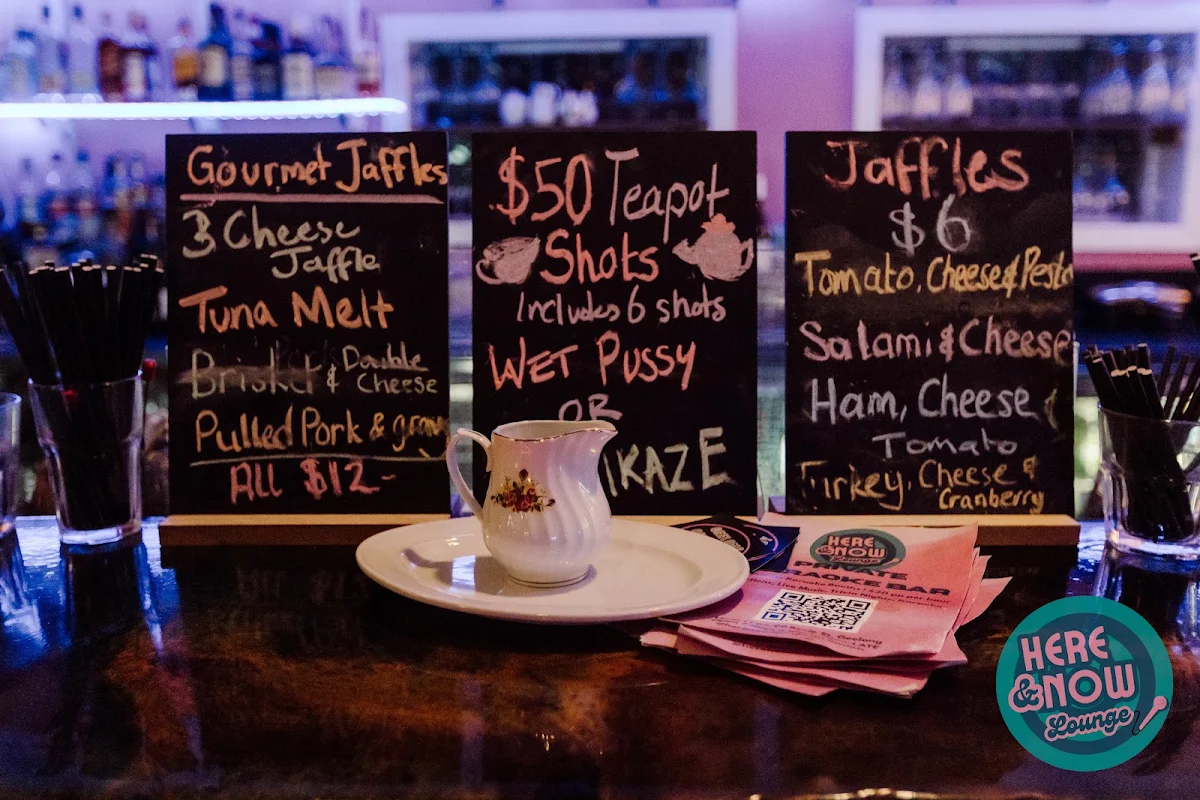 Gourmet Jaffles
3 Cheese
Jaffle
Tuna Melt
Brisket & Double
Cheese
Pulled Pork & gravy
All $12-
$50 Teapot
Shots
Includes 6 shots
WET PUSSY
OR
IKAZE
Jaffles
$6
Tomato, Cheese & Pesto
Salami & Cheese
Ham, Cheese &
Tomato
Tirkey, Cheese &
Cranberry
HERE
&NOW
Lounge
PRIVATE
RAOKE BAR
Geelong
HERE
&NOW
Lounge